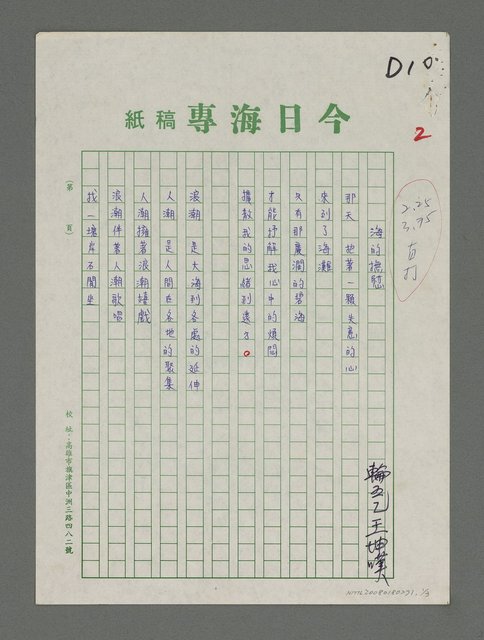 D10
2
今日海專稿紙
2.25
3.75
海的撫慰
那天 拖著一顆失意的心
來到了海灘
只有那廣濶的碧海
才能抒解我心中的煩悶
擴散我的思緒到遠方。
浪潮 是大海到各處的延伸
人潮 是人間在各地的聚集
人潮擁著浪潮嬉戲
浪潮伴著人潮歌唱
找一塊岸石閒坐
輪五乙王坤嘆
(第 頁)
校址：高雄市旗津區中洲三路四八二號
NMTL20080180291. 1/3